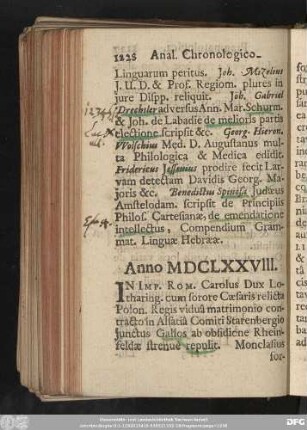 1228 Anal. Chronologico-
Linguarum peritus. Joh.
J. U. D. & Prof. Regiom. plures in
jure Dispp. reliquit. Joh. Gabriel
Drechsler adversus Ann. Mar. Schurm.
& Joh. de Labadie de melioris partis
electione scripsit &c. Georg. Hieron.
Welschius Med. D. Augustanus mul-
ta Philologica & Medica edidit.
Fridericus Jessenius prodire fecit Lar-
vam detectam Davidis Georg. Ma-
joris &c. Benedictus Spinosa Judæus
Amstelodam. scripsit de Principiis
Philos. Cartesianæ, de emendatione
intellectus, Compendium Gram-
mat. Linguæ Hebrææ.
Anno MDCLXXVIII.
IN IMP. ROM. Carolus Dux Lo-
tharing. cum sorore Cæsaris relicta
Polon. Regis vidua matrimonio con-
tracto in Alsatia Comiti Starenbergio
junctus Gallos ab obsidione Rhein-
feldæ strenue repulit. Monclasius
sor-
DFG